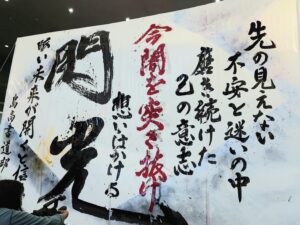 先の見えない
不安と迷いの中
磨き続けた
己の意志
今闇を突き抜け
想いはかける
閃光
明い未来が開くと信